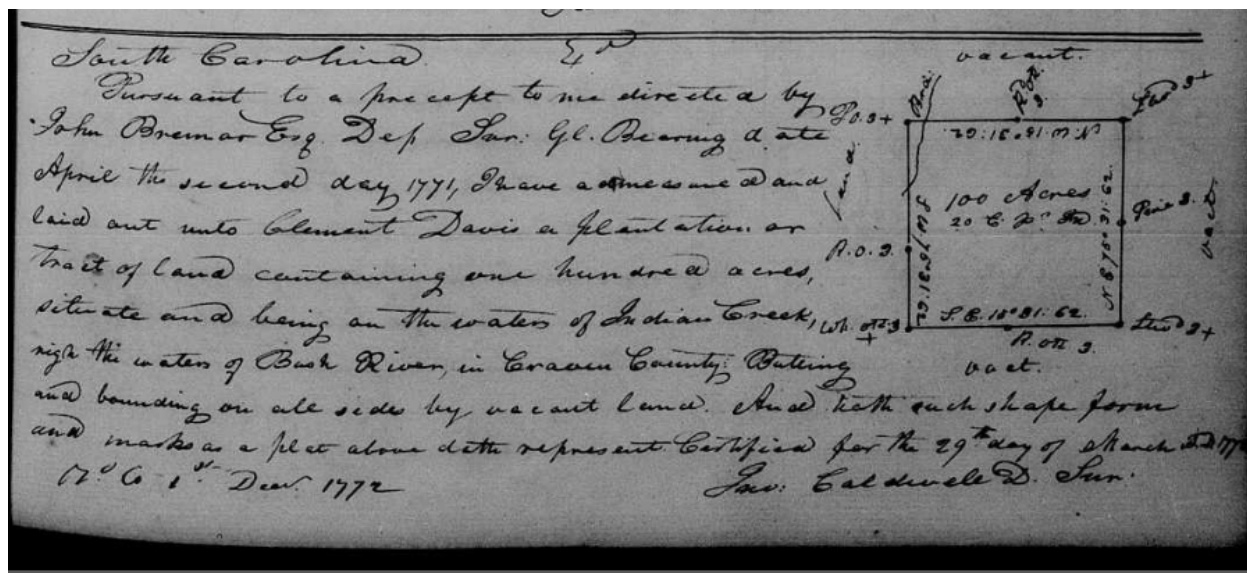 South Carolina
Pursuant to a precept to me directed by
John Bremar Esq. Dep Sur: Gl. Bearing date
April the second day 1771, I have admeasured and
laid out unto Clement Davis a plantation or
tract of land containing one hundred acres,
situate and being on the waters of Indian Creek,
nigh the waters of Bush River, in Craven County: Butting
and bounding on all sides by vacant land. And hath such shape form
and marks as a plat above doth represent Certified for the 29th day of March 177
Dear. 1772
Jno: Caldwell D. Sur.
vacant.
Po. 3+
R. Ok 3.
N: W: 15° 31: 62.
land.
100 Acres
20 C. pr. In.
Pine 3.
vact.
R. O. 3.
S W 75° 31: 62
N E 75° 31: 62.
S. E. 15° 31: 62.
Wh. Ok 3+
R. Ok 3.
vact.